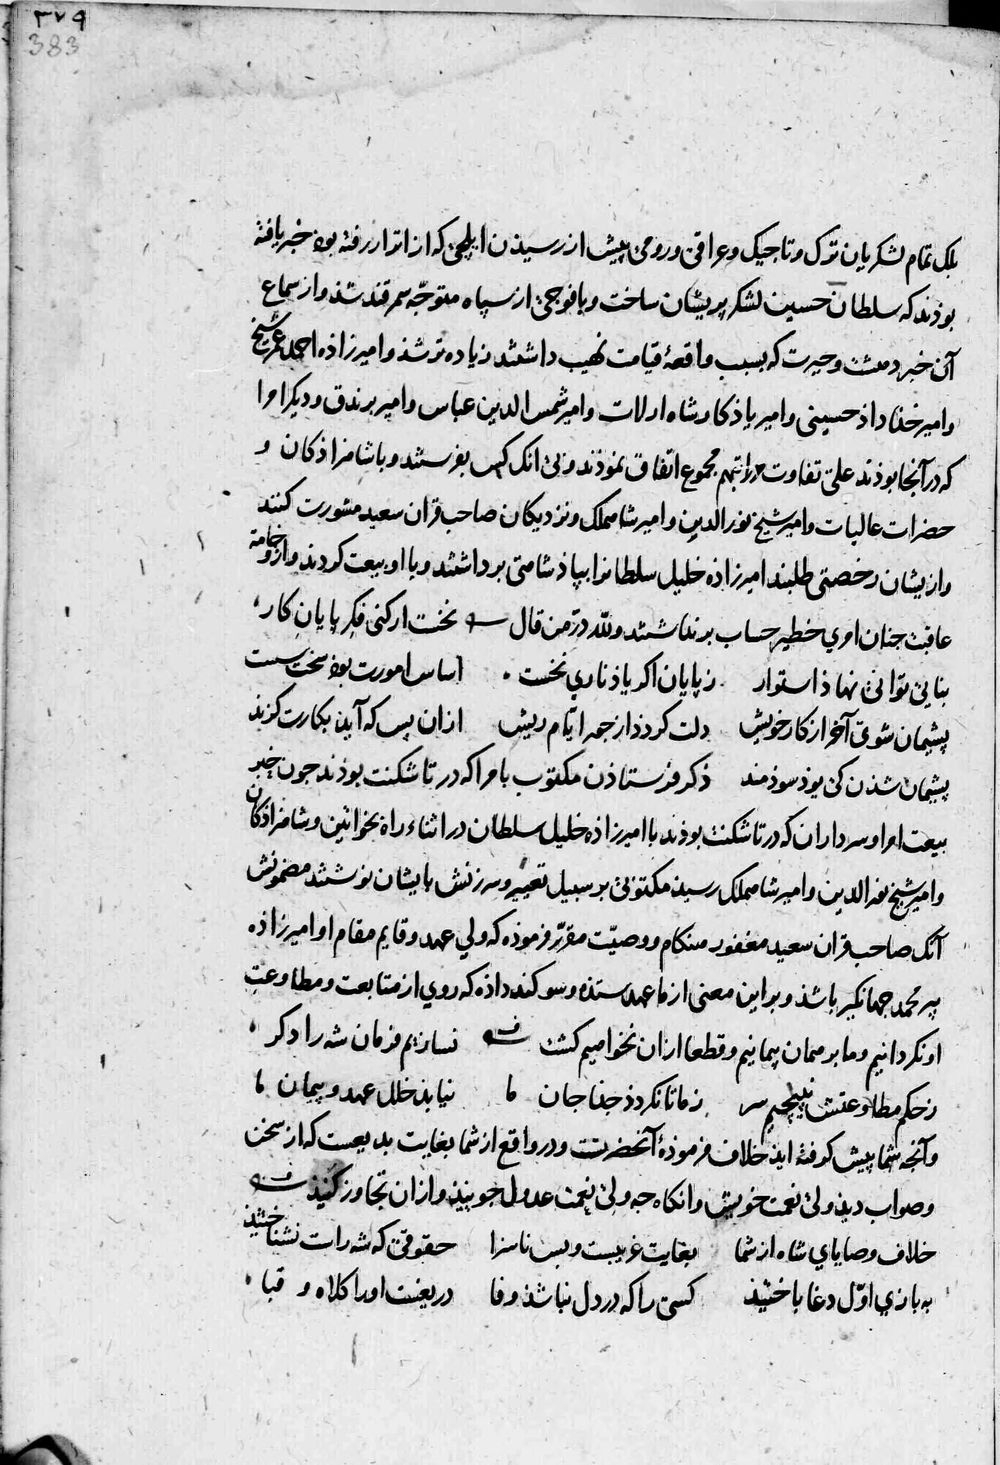 ۳۷۹
383
بلک تمام لشکریان ترک و تاجیک و عراقی و رومی پیش از رسیذن ایلچی که از اترار رفته بوذ خبر یافته
بوذند که سلطان حسین لشکر پریشان ساخت و با فوجی از سپاه متوجّه سمرقند شذ و از سماع
آن خبر دهشت و حیرت که بسبب واقعهٔ قیامت نهیب داشتند زیاده تر شذ و امیرزاذه احمد عمر شیخ
و امیر خذاداذ حسینی و امیر یاذکار شاه ارلات و امیر شمس الدین عباس و امیر برندق و دیکر امرا
که در آنجا بوذند علی تفاوت مراتبهم مجموع اتفاق نموذند و بی انک کس بفرستند و با شاهزاذکان و
حضرات عالیات و امیر شیخ نورالدین و امیر شاهملک و نزدیکان صاحب قران سعید مشورت کنند
و ازیشان رخصتی طلبند امیرزاذه خلیل سلطانرا بپاذشاهی برداشتند و با او بیعت کردند و از وخامة
عاقبت جنان امری خطیر حساب برنداشتند و لله درّ من قال نخست ار کنی فکر پایان کار
بنایی توانی نهاذ استوار ز پایان اکر یاذ ناری نخست اساس امورت بوذ سخت سست
پشیمان شوی آخر از کار خویش دلت کردذ از جور ایّام ریش ازان پس که آید بکارت کزند
پشیمان شذن کی بوذ سوذمند ذکر فرستاذن مکتوب بامرا که در تاشکنت بوذند جون خبر
بیعت امرا و سرداران که در تاشکنت بوذند با امیرزاذه خلیل سلطان در اثناء راه بخواتین و شاهزاذکان
و امیر شیخ نورالدین و امیر شاهملک رسیذ مکتوبی بر سبیل تعییر و سرزنش بایشان نوشتند مضمونش
آنک صاحب قران سعید مغفور هنکام ووصیّت مقرّر فرموذه که ولی عهد و قایم مقام او امیرزاذه
پیر محمد جهانکیر باشذ و بر این معنی از ما عهد ستذه و سوکند داذه که روی از متابعت و مطاوعت
او نکردانیم و ما بر همان پیمانیم و قطعا ازان نخواهیم کشت نسازیم فرمان شه را دکر
ز حکم مطاوعتش نپیچیم سر ز ما تا نکردذ جذا جان ما نیابذ خلل عهد و پیمان ما
و آنجه شما پیش کرفته ایذ خلاف فرموذهٔ آنحضرتست و در واقع از شما بغایت بدیعست که از سخن
و صواب دید ولی نعمت خویش و انکاه جه ولی نعمت عدول جویید و ازان تجاوز کنیذ
خلاف وصایای شاه از شما بغایت غریبست و بس ناسزا حقوقی که شه راست نشناختیذ
به بازی اوّل دغا باختیذ کسی را که در دل نباشذ وفا دریغست او را کلاه و قبا